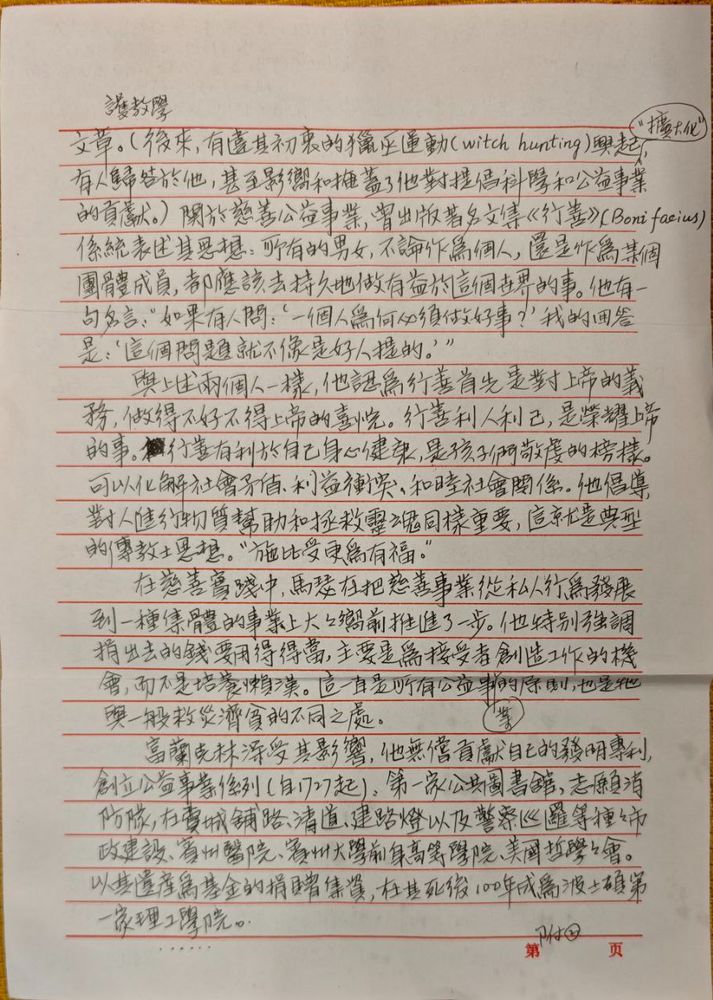 護教學
"擴大化"
文章。(後來，有違其初衷的獵巫運動(witch hunting)興起，
有人歸咎於他，甚至影響和掩蓋了他對提倡科學和公益事業
的貢獻。)關於慈善公益事業，曾出版著名文集《行善》(Bonifacius)
係統表述其思想：所有的男女，不論作為個人，還是作為某個
團體成員，都應該去持久地做有益於這個世界的事。他有一
句名言："如果有人問：'一個人為何必須做好事？'我的回答
是：'這個問題就不像是好人提的。'"
與上述兩個人一樣，他認為行善首先是對上帝的義
務，做得不好不得上帝的喜悅。行善利人利己，是榮耀上帝
的事。行善有利於自己身心健康，是孩子們敬虔的榜樣。
可以化解社會矛盾、利益衝突、和睦社會關係。他倡導，
對人進行物質幫助和拯救靈魂同樣重要，這就是典型
的傳教士思想。"施比受更為有福。"
在慈善實踐中，馬瑟在把慈善事業從私人行為發展
到一種集體的事業上大大嚮前推進了一步。他特別強調
捐出去的錢要用得得當，主要是為接受者創造工作的機
會，而不是培養懶漢。這一直是所有公益事業的原則，也是他
與一般救災濟貧的不同之處。
富蘭克林深受其影響，他無償貢獻自己的發明專利，
創立公益事業係列(自1727起)：第一家公共圖書館，志願消
防隊，在費城鋪路、清道、建路燈以及警察巡邏等種種市
政建設、賓州醫院、賓州大學前身高等學院、美國哲學學會。
以其遺產為基金的捐贈集資，在其死後100年成為波士頓第
一家理工學院。
附②
第 页